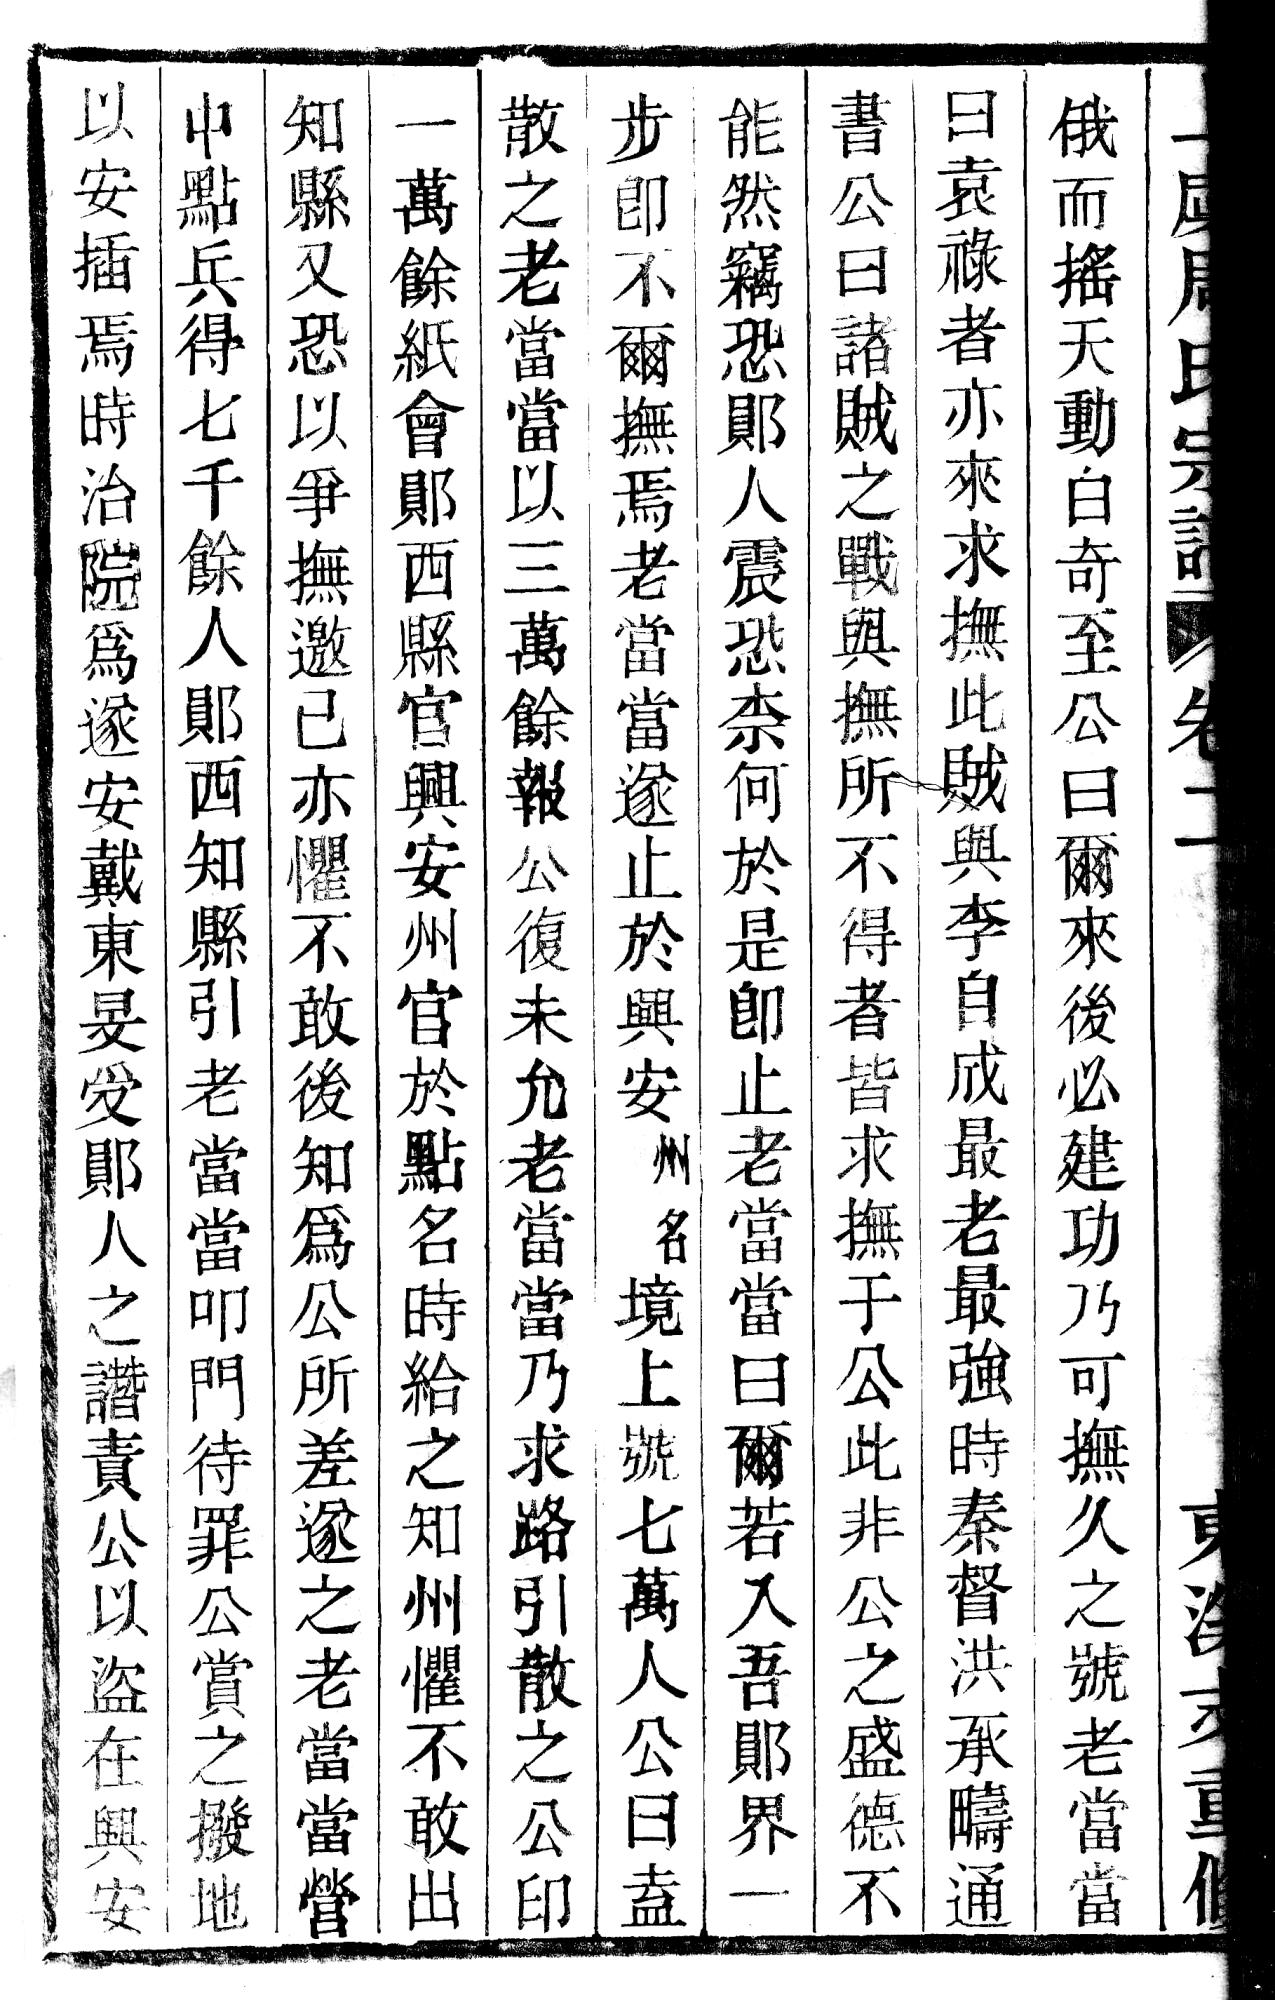 周氏宗譜 卷二
俄而搖天動白奇至公曰爾來後必建功乃可撫久之號老當當
曰袁祿者亦來求撫此賊與李自成最老最強時秦督洪承疇通
書公曰諸賊之戰與撫所不得者皆求撫于公此非公之盛德不
能然竊恐鄖人震恐柰何於是卽止老當當曰爾若入吾鄖界一
步卽不爾撫焉老當當遂止於興安州名境上號七萬人公曰盍
散之老當當以三萬餘報公復未允老當當乃求路引散之公印
一萬餘紙會鄖西縣官興安州官於點名時給之知州懼不敢出
知縣又恐以爭撫邀己亦懼不敢後知爲公所差遂之老當當營
中點兵得七千餘人鄖西知縣引老當當叩門待罪公賞之撥地
以安插焉時治院爲遂安戴東旻受鄖人之譖責公以盜在興安